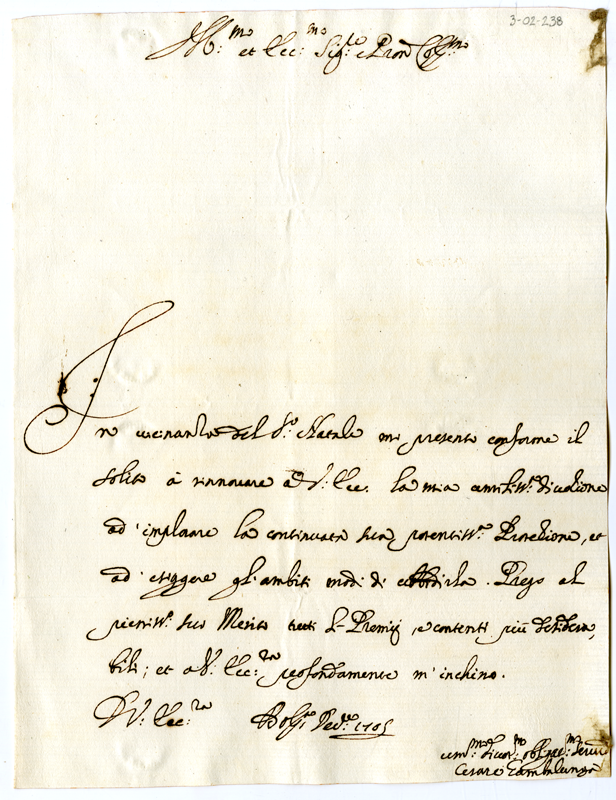 3-02-238
Ill:mo et Ecc:mo Sig:re e Pron Col:mo
In vicinanza del S:o Natale mi presento conforme il
solito à rinnovare à V: Ecc. la mia umiliss:a divotione
ad' implorare la continuata sua potentiss:a Protetione, et
ad' esiggere gl'ambiti modi di . Prego al
pieniss:o suo Merito tutti l-Premij, e contenti più desidera,
bili; et a V: Ecc:za profondamente m'inchino.
D V: Ecc:za 1705
um:mo divot:mo obl:mo
Cesare